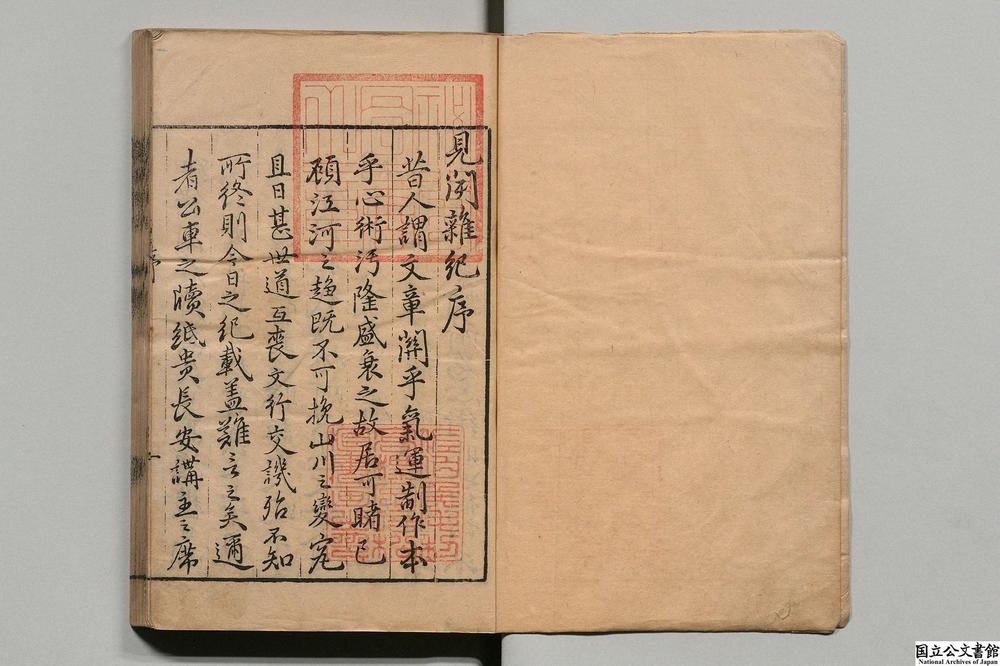 見聞雜紀序
昔人謂文章關乎氣運制作本
乎心術汚隆盛衰之故居可睹已
顧江河之趨既不可挽山川之變
且日甚世道互喪文行交譏殆不知
所終則今日之紀載盖難言之矣邇
者公車之牘紙贵長安講主之席
序
一
国立公文書館
National Archives of Japan